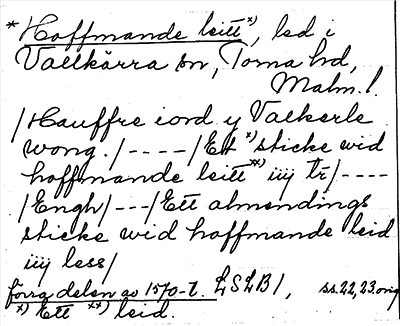 * Hoffmande leitt x), led i
Vallkärra sn, Torna hd,
Malm. l.
/Hauffre iord y Valkerle
wong./----/Ett x) sticke wid
hoffmande leitt xx) iiij tr/----
/Engh/---/Ett almendings
sticke wid hoffmande leid
iiij less/
förra delen av 1570-t. LSLB 1, ss. 22, 23. orig
x) Ett xx) leid.